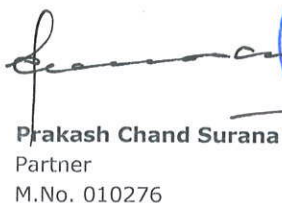 Prakash Chand Surana
Partner
M.No. 010276